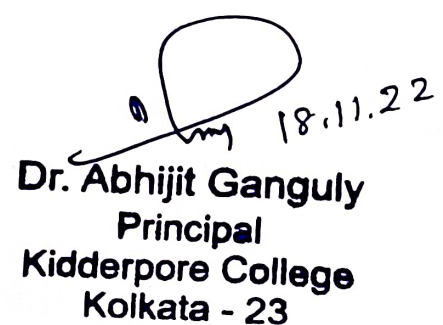 18.11.22
Dr. Abhijit Ganguly
Principal
Kidderpore College
Kolkata - 23